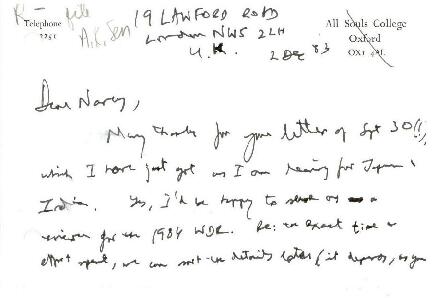 R — file
A.K. Sen
Telephone
2251
19 LAWFORD ROAD
London NW5 2LH
U.K.
2 DEC 83
All Souls College
Oxford
OX1 4AL
Dear Nancy,
Many thanks for your letter of Sept 30 (!!),
which I have just got as I am leaving for Japan &
India. Yes, I'd be happy to as a
reviewer for the 1984 WDR. Re: the exact time &
effort spent, we can sort the details later (it depends, as you